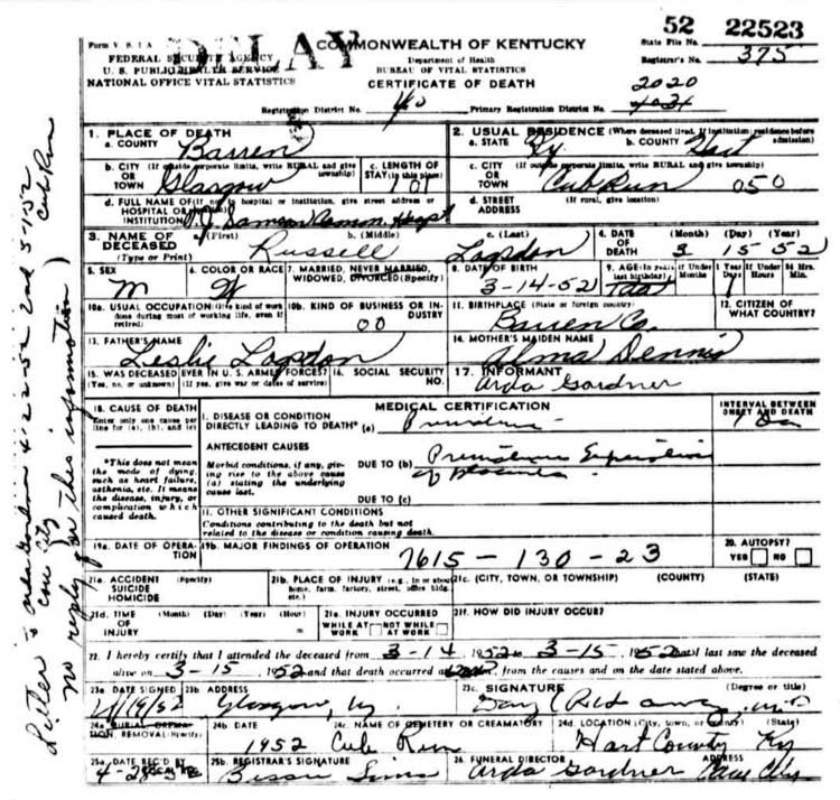 52 22523
Form V. S. 1 A
DELAY
COMMONWEALTH OF KENTUCKY
State File No.
FEDERAL SECURITY AGENCY
Department of Health
Registrar's No. 375
U. S. PUBLIC HEALTH SERVICE
BUREAU OF VITAL STATISTICS
NATIONAL OFFICE VITAL STATISTICS
CERTIFICATE OF DEATH
2020
Registration District No.
Primary Registration District No.
1. PLACE OF DEATH
a. COUNTY Barren
2. USUAL RESIDENCE (Where deceased lived. If institution: residence before admission)
a. STATE Ky b. COUNTY Hart
b. CITY (If outside corporate limits, write RURAL and give township)
OR TOWN Glasgow
c. LENGTH OF STAY (in this place)
c. CITY (If outside corporate limits, write RURAL and give township)
OR TOWN Cub Run 050
d. FULL NAME OF (If not in hospital or institution, give street address or
HOSPITAL OR
INSTITUTION T. J. Samson Comm. Hospt
d. STREET (If rural, give location)
ADDRESS
3. NAME OF DECEASED
(Type or Print)
a. (First) b. (Middle) c. (Last)
Russell Logsdon
4. DATE OF DEATH (Month) (Day) (Year)
3 15 52
5. SEX
M
6. COLOR OR RACE
W
7. MARRIED, NEVER MARRIED, WIDOWED, DIVORCED (Specify)
8. DATE OF BIRTH
3-14-52
9. AGE (In years last birthday) If Under 1 Year Months Days If Under 24 Hrs. Hours Min.
1
10a. USUAL OCCUPATION (Give kind of work done during most of working life, even if retired)
10b. KIND OF BUSINESS OR INDUSTRY
00
11. BIRTHPLACE (State or foreign country)
Barren Co.
12. CITIZEN OF WHAT COUNTRY?
13. FATHER'S NAME
Leslie Logsdon
14. MOTHER'S MAIDEN NAME
Alma Dennis
15. WAS DECEASED EVER IN U. S. ARMED FORCES?
(Yes, no, or unknown) (If yes, give war or dates of service)
16. SOCIAL SECURITY NO.
17. INFORMANT
Arda Gardner
18. CAUSE OF DEATH
Enter only one cause per line for (a), (b), and (c)
MEDICAL CERTIFICATION
INTERVAL BETWEEN ONSET AND DEATH
I. DISEASE OR CONDITION
DIRECTLY LEADING TO DEATH* (a)
1 Da
*This does not mean the mode of dying, such as heart failure, asthenia, etc. It means the disease, injury, or complication which caused death.
ANTECEDENT CAUSES
Morbid conditions, if any, giving rise to the above cause (a) stating the underlying cause last.
DUE TO (b) Premature Separation
of placenta
DUE TO (c)
II. OTHER SIGNIFICANT CONDITIONS
Conditions contributing to the death but not related to the disease or condition causing death.
19a. DATE OF OPERATION
19b. MAJOR FINDINGS OF OPERATION
7615 - 130 - 23
20. AUTOPSY?
YES NO
21a. ACCIDENT (Specify)
SUICIDE
HOMICIDE
21b. PLACE OF INJURY (e.g., in or about home, farm, factory, street, office bldg., etc.)
21c. (CITY, TOWN, OR TOWNSHIP) (COUNTY) (STATE)
21d. TIME OF INJURY (Month) (Day) (Year) (Hour)
m
21e. INJURY OCCURRED
WHILE AT WORK NOT WHILE AT WORK
21f. HOW DID INJURY OCCUR?
22. I hereby certify that I attended the deceased from 3-14, 1952 to 3-15, 1952 that I last saw the deceased
alive on 3-15, 1952 and that death occurred at m., from the causes and on the date stated above.
23a. DATE SIGNED
23b. ADDRESS
Glasgow, Ky.
23c. SIGNATURE (Degree or title)
M.D.
24a. BURIAL, CREMATION, REMOVAL (Specify)
24b. DATE
1952
24c. NAME OF CEMETERY OR CREMATORY
Cub Run
24d. LOCATION (City, town, or county) (State)
Hart County Ky
25a. DATE REC'D BY LOCAL REG.
4-28-52
25b. REGISTRAR'S SIGNATURE
Bessie Sims
26. FUNERAL DIRECTOR ADDRESS
Arda Gardner Cave City
Letter to 4-22-52 2nd 5-1-52
Cave City Cub Run
no reply for this information)